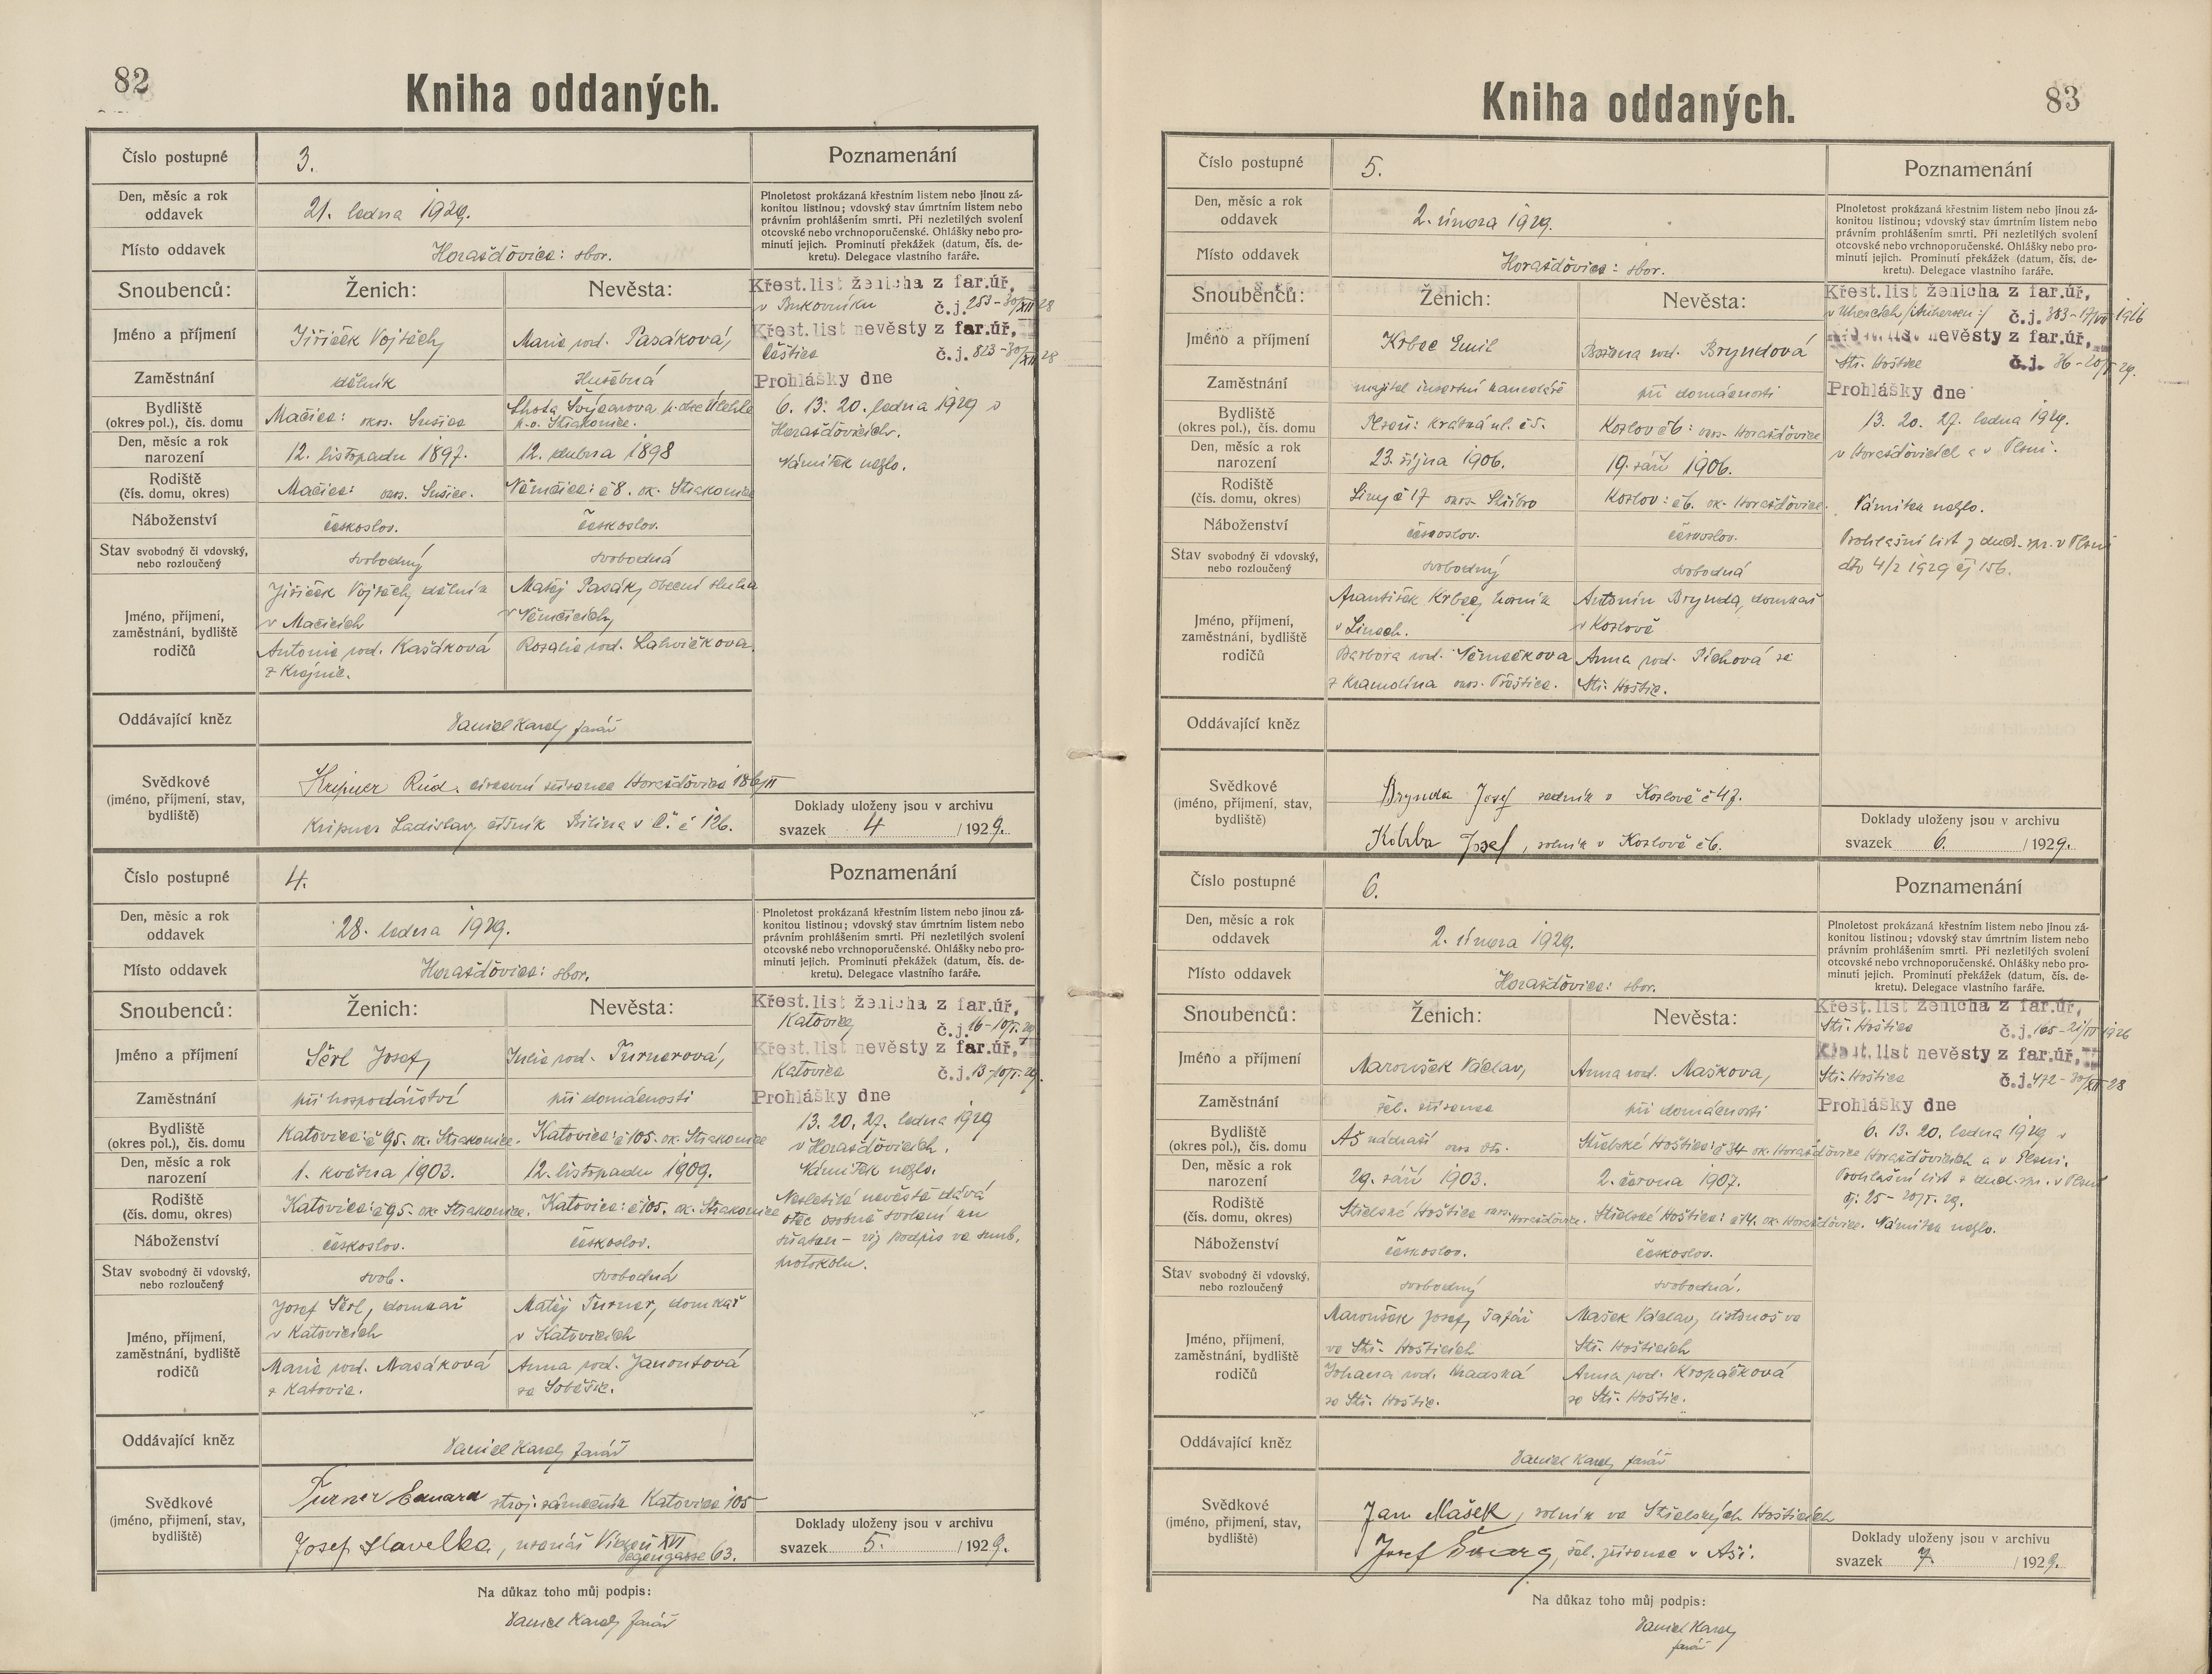 82
Kniha oddaných.
Číslo postupné
3.
Poznamenání
Den, měsíc a rok
oddavek
21. ledna 1929.
Plnoletost prokázaná křestním listem nebo jinou zá-
konitou listinou; vdovský stav úmrtním listem nebo
právním prohlášením smrti. Při nezletilých svolení
otcovské nebo vrchnoporučenské. Ohlášky nebo pro-
minutí jejich. Prominutí překážek (datum, čís. de-
kretu). Delegace vlastního faráře.
Místo oddavek
Horažďovice: sbor.
Snoubenců:
Ženich:
Nevěsta:
Křest. list ženicha z far. úř.
v Bukovníku č. j. 253-30/XII 28
Jméno a příjmení
Jiříček Vojtěch,
Marie roz. Pasáková,
Křest. list nevěsty z far. úř.
Čéštice č. j. 823-30/XII 28
Zaměstnání
dělník
služebná
Prohlášky dne
Bydliště
(okres pol.), čís. domu
Mačice: okr. Sušice
Lhota Švejcarova
p. o. Strakonice.
6. 13. 20. ledna 1929 v
Horažďovicích.
Den, měsíc a rok
narození
12. listopadu 1897.
12. dubna 1898
Námitek nešlo.
Rodiště
(čís. domu, okres)
Mačice: okr. Sušice.
Němčice: č 8. ok. Strakonice
Náboženství
českoslov.
českoslov.
Stav svobodný či vdovský,
nebo rozloučený
svobodný
svobodná
Jméno, příjmení,
zaměstnání, bydliště
rodičů
Jiříček Vojtěch, dělník
v Mačicích
Matěj Pasák, obecní sluha
v Němčicích,
Antonie roz. Kašáková
z Krajnic.
Rozalie roz. Lahvičkova.
Oddávající kněz
Daniel Karel, farář
Svědkové
(jméno, příjmení, stav,
bydliště)
Kripner Rud. Horažďovice 186/II
Kripner Ladislav, číšník Bílina v Č. č 126.
Doklady uloženy jsou v archivu
svazek 4 /1929.
Číslo postupné
4.
Poznamenání
Den, měsíc a rok
oddavek
28. ledna 1929.
Plnoletost prokázaná křestním listem nebo jinou zá-
konitou listinou; vdovský stav úmrtním listem nebo
právním prohlášením smrti. Při nezletilých svolení
otcovské nebo vrchnoporučenské. Ohlášky nebo pro-
minutí jejich. Prominutí překážek (datum, čís. de-
kretu). Delegace vlastního faráře.
Místo oddavek
Horažďovice: sbor.
Snoubenců:
Ženich:
Nevěsta:
Křest. list ženicha z far. úř.
Katovice, č. j. 16-10/I. 29
Jméno a příjmení
Šérl Josef,
Julie roz. Turnerová,
Křest. list nevěsty z far. úř.
Katovice č. j. 13-10/I. 29.
Zaměstnání
při hospodářství
při domácnosti
Prohlášky dne
Bydliště
(okres pol.), čís. domu
Katovice: č 95. ok. Strakonice.
Katovice: č 105. ok. Strakonice
13. 20. 27. ledna 1929
v Horažďovicích.
Den, měsíc a rok
narození
1. května 1903.
12. listopadu 1909.
Námitek nešlo.
Rodiště
(čís. domu, okres)
Katovice: č 95. ok. Strakonice.
Katovice: č 105. ok. Strakonice
Nezletilé nevěstě dává
otec osobně svolení ku
sňatku - viz podpis ve snub.
protokolu.
Náboženství
českoslov.
českoslov.
Stav svobodný či vdovský,
nebo rozloučený
svob.
svobodná
Jméno, příjmení,
zaměstnání, bydliště
rodičů
Josef Šérl, domkář
v Katovicích
Matěj Turner, domkář
v Katovicích
Marie roz. Masáková
z Katovic.
Anna roz. Janoutová
ze Soběšic.
Oddávající kněz
Daniel Karel, farář
Svědkové
(jméno, příjmení, stav,
bydliště)
Turner Eduard stroj. zámečník Katovice 105
Josef Havelka, Vídeň XVI
Degengasse 63.
Doklady uloženy jsou v archivu
svazek 5. /1929.
Na důkaz toho můj podpis:
Daniel Karel, farář
83
Kniha oddaných.
Číslo postupné
5.
Poznamenání
Den, měsíc a rok
oddavek
2. února 1929.
Plnoletost prokázaná křestním listem nebo jinou zá-
konitou listinou; vdovský stav úmrtním listem nebo
právním prohlášením smrti. Při nezletilých svolení
otcovské nebo vrchnoporučenské. Ohlášky nebo pro-
minutí jejich. Prominutí překážek (datum, čís. de-
kretu). Delegace vlastního faráře.
Místo oddavek
Horažďovice: sbor.
Snoubenců:
Ženich:
Nevěsta:
Křest. list ženicha z far. úř.
v Uhercích č. j. 383-17/VII 1916
Jméno a příjmení
Krbec Emil
Božena roz. Bryndová
Křest. list nevěsty z far. úř.
Stř. Hoštice č. j. 36-20/I. 29.
Zaměstnání
majitel insertní kanceláře
při domácnosti
Prohlášky dne
Bydliště
(okres pol.), čís. domu
Plzeň: krátká ul. č 5.
Kozlov č 6: okr. Horažďovice
13. 20. 27. ledna 1929.
v Horažďovicích a v Plzni.
Den, měsíc a rok
narození
23. října 1906.
19. září 1906.
Rodiště
(čís. domu, okres)
Liny č 17 okr. Stříbro
Kozlov: č 6. ok. Horažďovice.
Námitek nešlo.
Náboženství
českoslov.
českoslov.
Prohlašní list z duch. spr. v Plzni
dto 4/2 1929 čj 156.
Stav svobodný či vdovský,
nebo rozloučený
svobodný
svobodná
Jméno, příjmení,
zaměstnání, bydliště
rodičů
František Krbec, horník
v Linech.
Antonín Brynda, domkář
v Kozlově
Barbora roz. Němečkova
z Kramolína okr. Přeštice.
Anna roz. Píchová ze
Stř. Hoštic.
Oddávající kněz
Svědkové
(jméno, příjmení, stav,
bydliště)
Brynda Josef sedník v Kozlově č 47.
Kobrba Josef, rolník v Kozlově č 6.
Doklady uloženy jsou v archivu
svazek 6. /1929.
Číslo postupné
6.
Poznamenání
Den, měsíc a rok
oddavek
2. února 1929.
Plnoletost prokázaná křestním listem nebo jinou zá-
konitou listinou; vdovský stav úmrtním listem nebo
právním prohlášením smrti. Při nezletilých svolení
otcovské nebo vrchnoporučenské. Ohlášky nebo pro-
minutí jejich. Prominutí překážek (datum, čís. de-
kretu). Delegace vlastního faráře.
Místo oddavek
Horažďovice: sbor.
Snoubenců:
Ženich:
Nevěsta:
Křest. list ženicha z far. úř.
Stř. Hoštice č. j. 165-21/IV 1926
Jméno a příjmení
Maroušek Václav,
Anna roz. Maškova,
Křest. list nevěsty z far. úř.
Stř. Hoštice č. j. 472-30/XII 28
Zaměstnání
žel. zřízenec
při domácnosti
Prohlášky dne
Bydliště
(okres pol.), čís. domu
Aš nádraží okr. dto.
Střelské Hoštice: č 34 ok. Horažďovice
6. 13. 20. ledna 1929 v
Horažďovicích a v Plzni.
Den, měsíc a rok
narození
29. září 1903.
2. června 1907.
Prohlašní list z duch. spr. v Plzni
čj. 25 - 20/I. 29.
Rodiště
(čís. domu, okres)
Střelské Hoštice okr. Horažďovice.
Střelské Hoštice: č 14. ok. Horažďovice.
Námitek nešlo.
Náboženství
českoslov.
českoslov.
Stav svobodný či vdovský,
nebo rozloučený
svobodný
svobodná.
Jméno, příjmení,
zaměstnání, bydliště
rodičů
Maroušek Josef, tesař
ve Stř. Hošticích
Mašek Václav, listonoš ve
Stř. Hošticích
Johana roz. Hradská
ze Stř. Hoštic.
Anna roz. Kropáčková
ze Stř. Hoštic.
Oddávající kněz
Daniel Karel, farář
Svědkové
(jméno, příjmení, stav,
bydliště)
Jan Mašek, rolník ve Střelských Hošticích
Josef Švarg, žel. zřízenec v Aši.
Doklady uloženy jsou v archivu
svazek 7. /1929.
Na důkaz toho můj podpis:
Daniel Karel,
farář